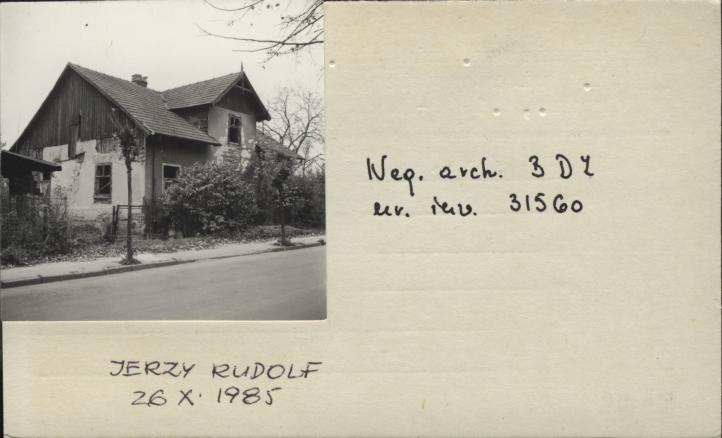 Neg. arch. BDZ
nr. inw. 31560
JERZY RUDOLF
26 X. 1985